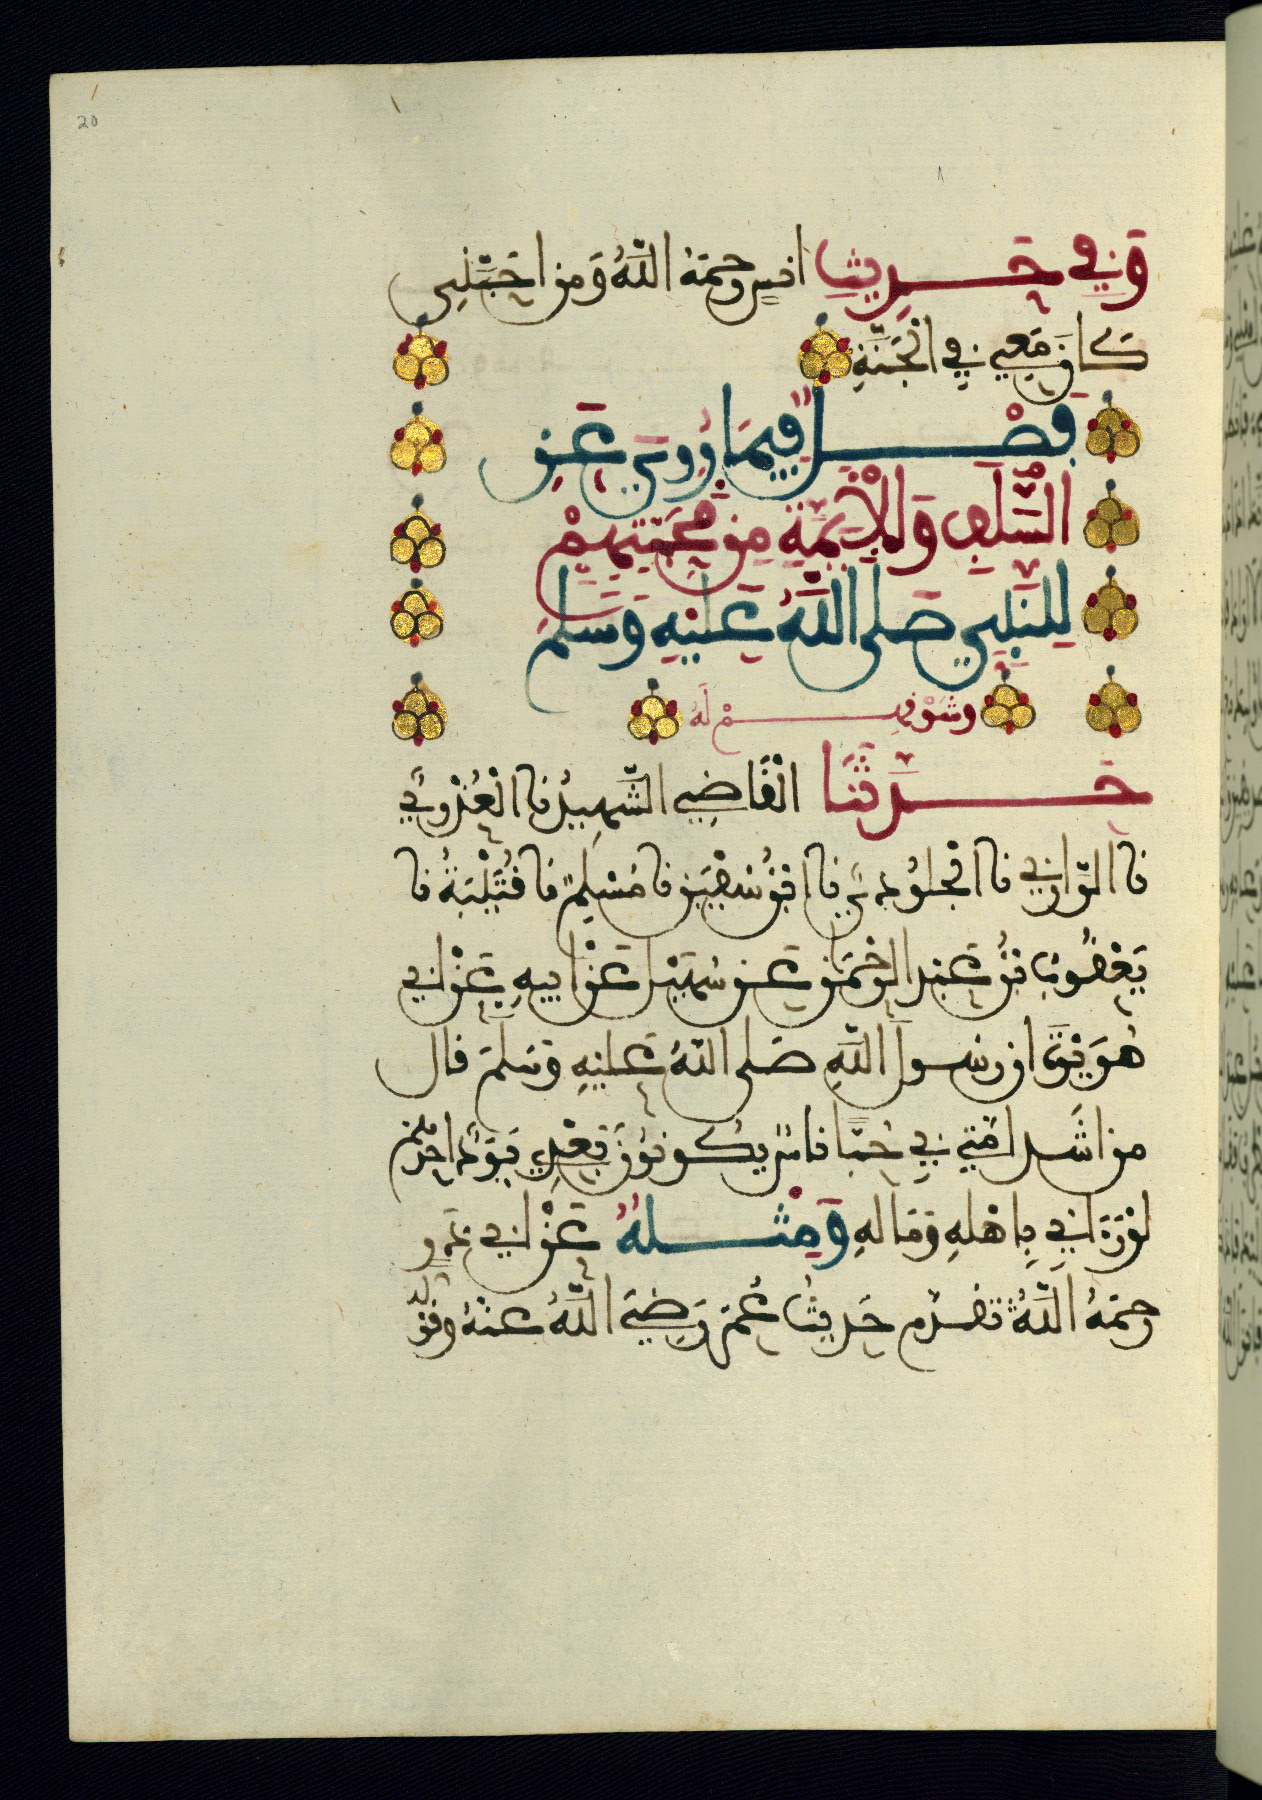 20
وَفِي حَدِيثِ انس رحمهُ اللّهُ وَمن احَبَّنِي
كَانَ مَعِي فِي الْجَنَّةِ
فَصْل فِيمَا رُوِيَ عَنِ
السَّلَفِ وَالْأَيِمَّةِ مِنْ مَحَبَّتِهِمْ
لِلنَّبِيِّ صَلَّى اللَّهُ عَلَيْهِ وَسَلَّمَ
وشَوْقِهِمْ لَهُ
حَدَّثَنَا الْقَاضِي الشَّهِيدُ نا الْعُذْرِيُّ
نا الرَّازِي نا الْجُلُودِيُّ نا ابْنُ سُفْيَن نا مُسْلِمٌ نا قُتَيْبَةُ نا
يَعْقُوبُ بْنُ عَبْدِ الرَّحْمَنِ عَن سُهَيْلٍ عَنْ ابِيهِ عَنْ ابِي
هُرَيْرَةَ ان رسُولَ اللَّهِ صَلى اللّهُ عَلَيْهِ وَسَلمَ قال
من اشَد امَّتِي لِي حُبًّا ناسٌ يَكُونُونَ بَعْدِي يَوَدُّ احدُهم
لوْ رَءَانِي بِاهْلِهِ وَمَالهِ وَمِثْلهُ عَنْ ابِي ذر
رحمَهُ اللَّهُ تقدم حَدِيثُ عُمَرَ رَضِيَ اللَّهُ عَنْهُ وقوْله